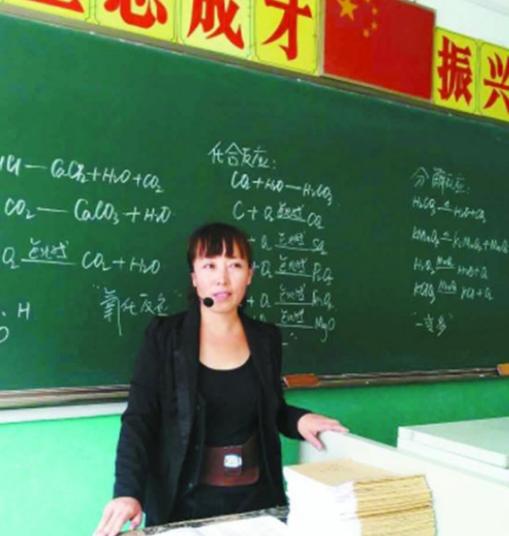 志成才
振兴
HCl — CaCl₂+H₂O+CO₂
CO₂ — CaCO₃+H₂O
O₂ 点燃 CO₂+H₂O
H
"氧化反应"
化合反应:
CO₂+H₂O—H₂CO₃
C+O₂ 点燃 CO₂
+O₂ 点燃 SO₂
+O₂ 点燃
+O₂ 点燃
点燃 MgO
分解反应:
H₂CO₃ H₂O+CO₂
KMnO₄ K₂MnO₄+MnO₂
H₂O₂ MnO₂ H₂O+O₂
KClO₃ MnO₂ KCl+O₂
"一变多"